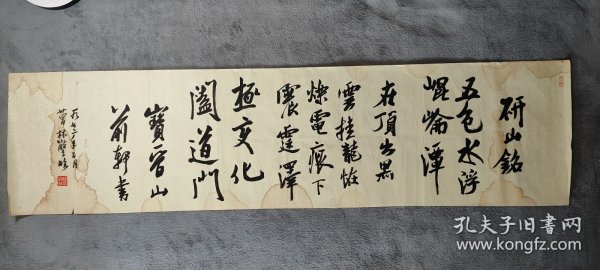 研山銘
五色水浮
崐崘潭
在頂出黑
雲挂龍怪
爍電痕下
震霆澤
極变化
闔道門
寶晉山
前軒書
孔夫子旧书网
www.kongfz.com